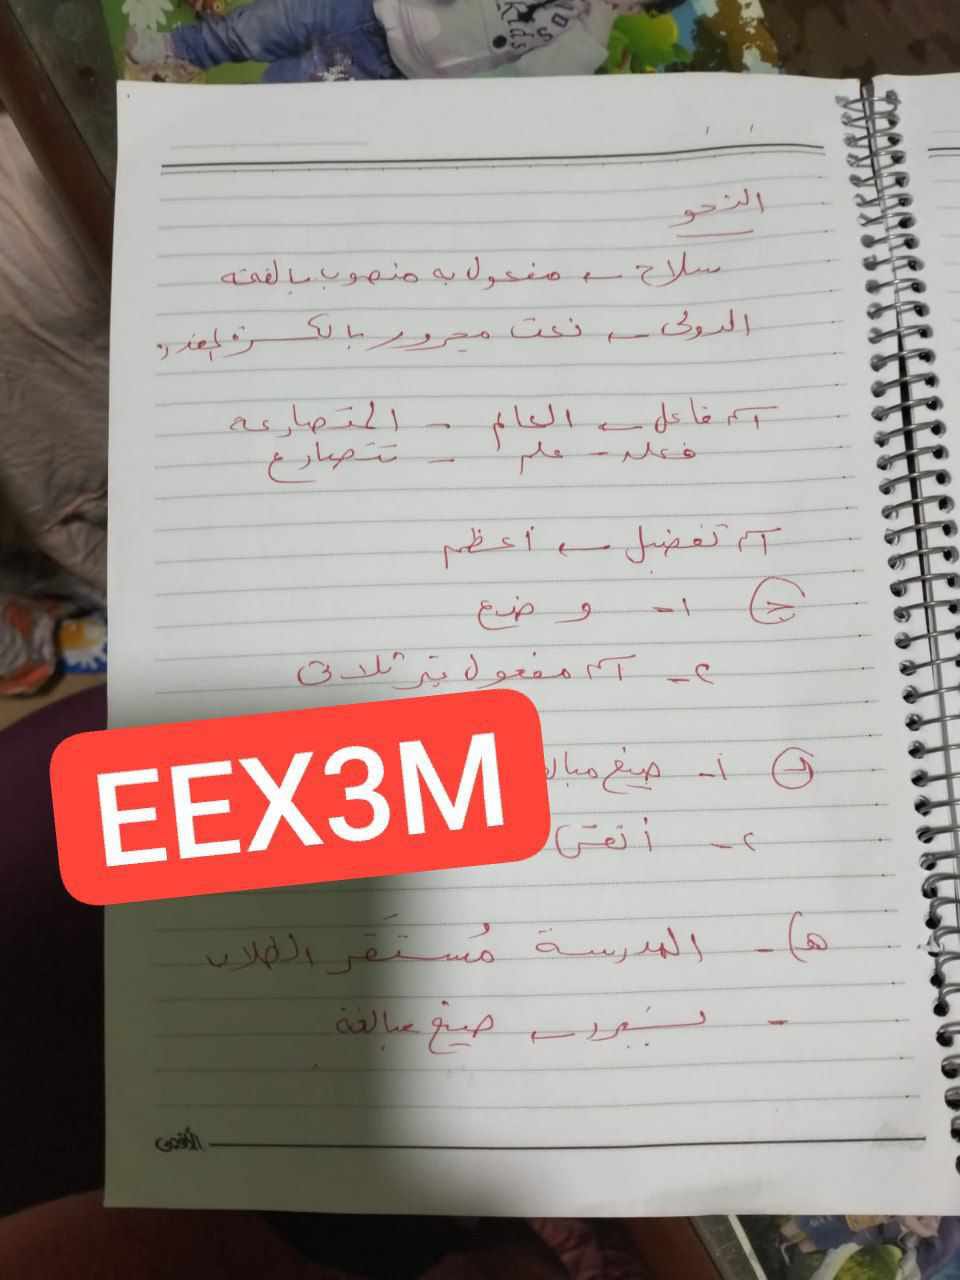 النحو
سلاح ← مفعول به منصوب بالفتحة
الدولى ← نعت مجرور بالكسرة المقدرة
اسم فاعل ← العالم - المتصارعة
فعله - علم - تتصارع
اسم تفضيل ← أعظم
ج ١- وضع
٢- اسم مفعول غير ثلاثى
د ١- صيغ مبال
٢- أتقى
هـ) - المدرسة مُستَقر الطلاب
- صيغ مبالغة
الأقصى
EEX3M